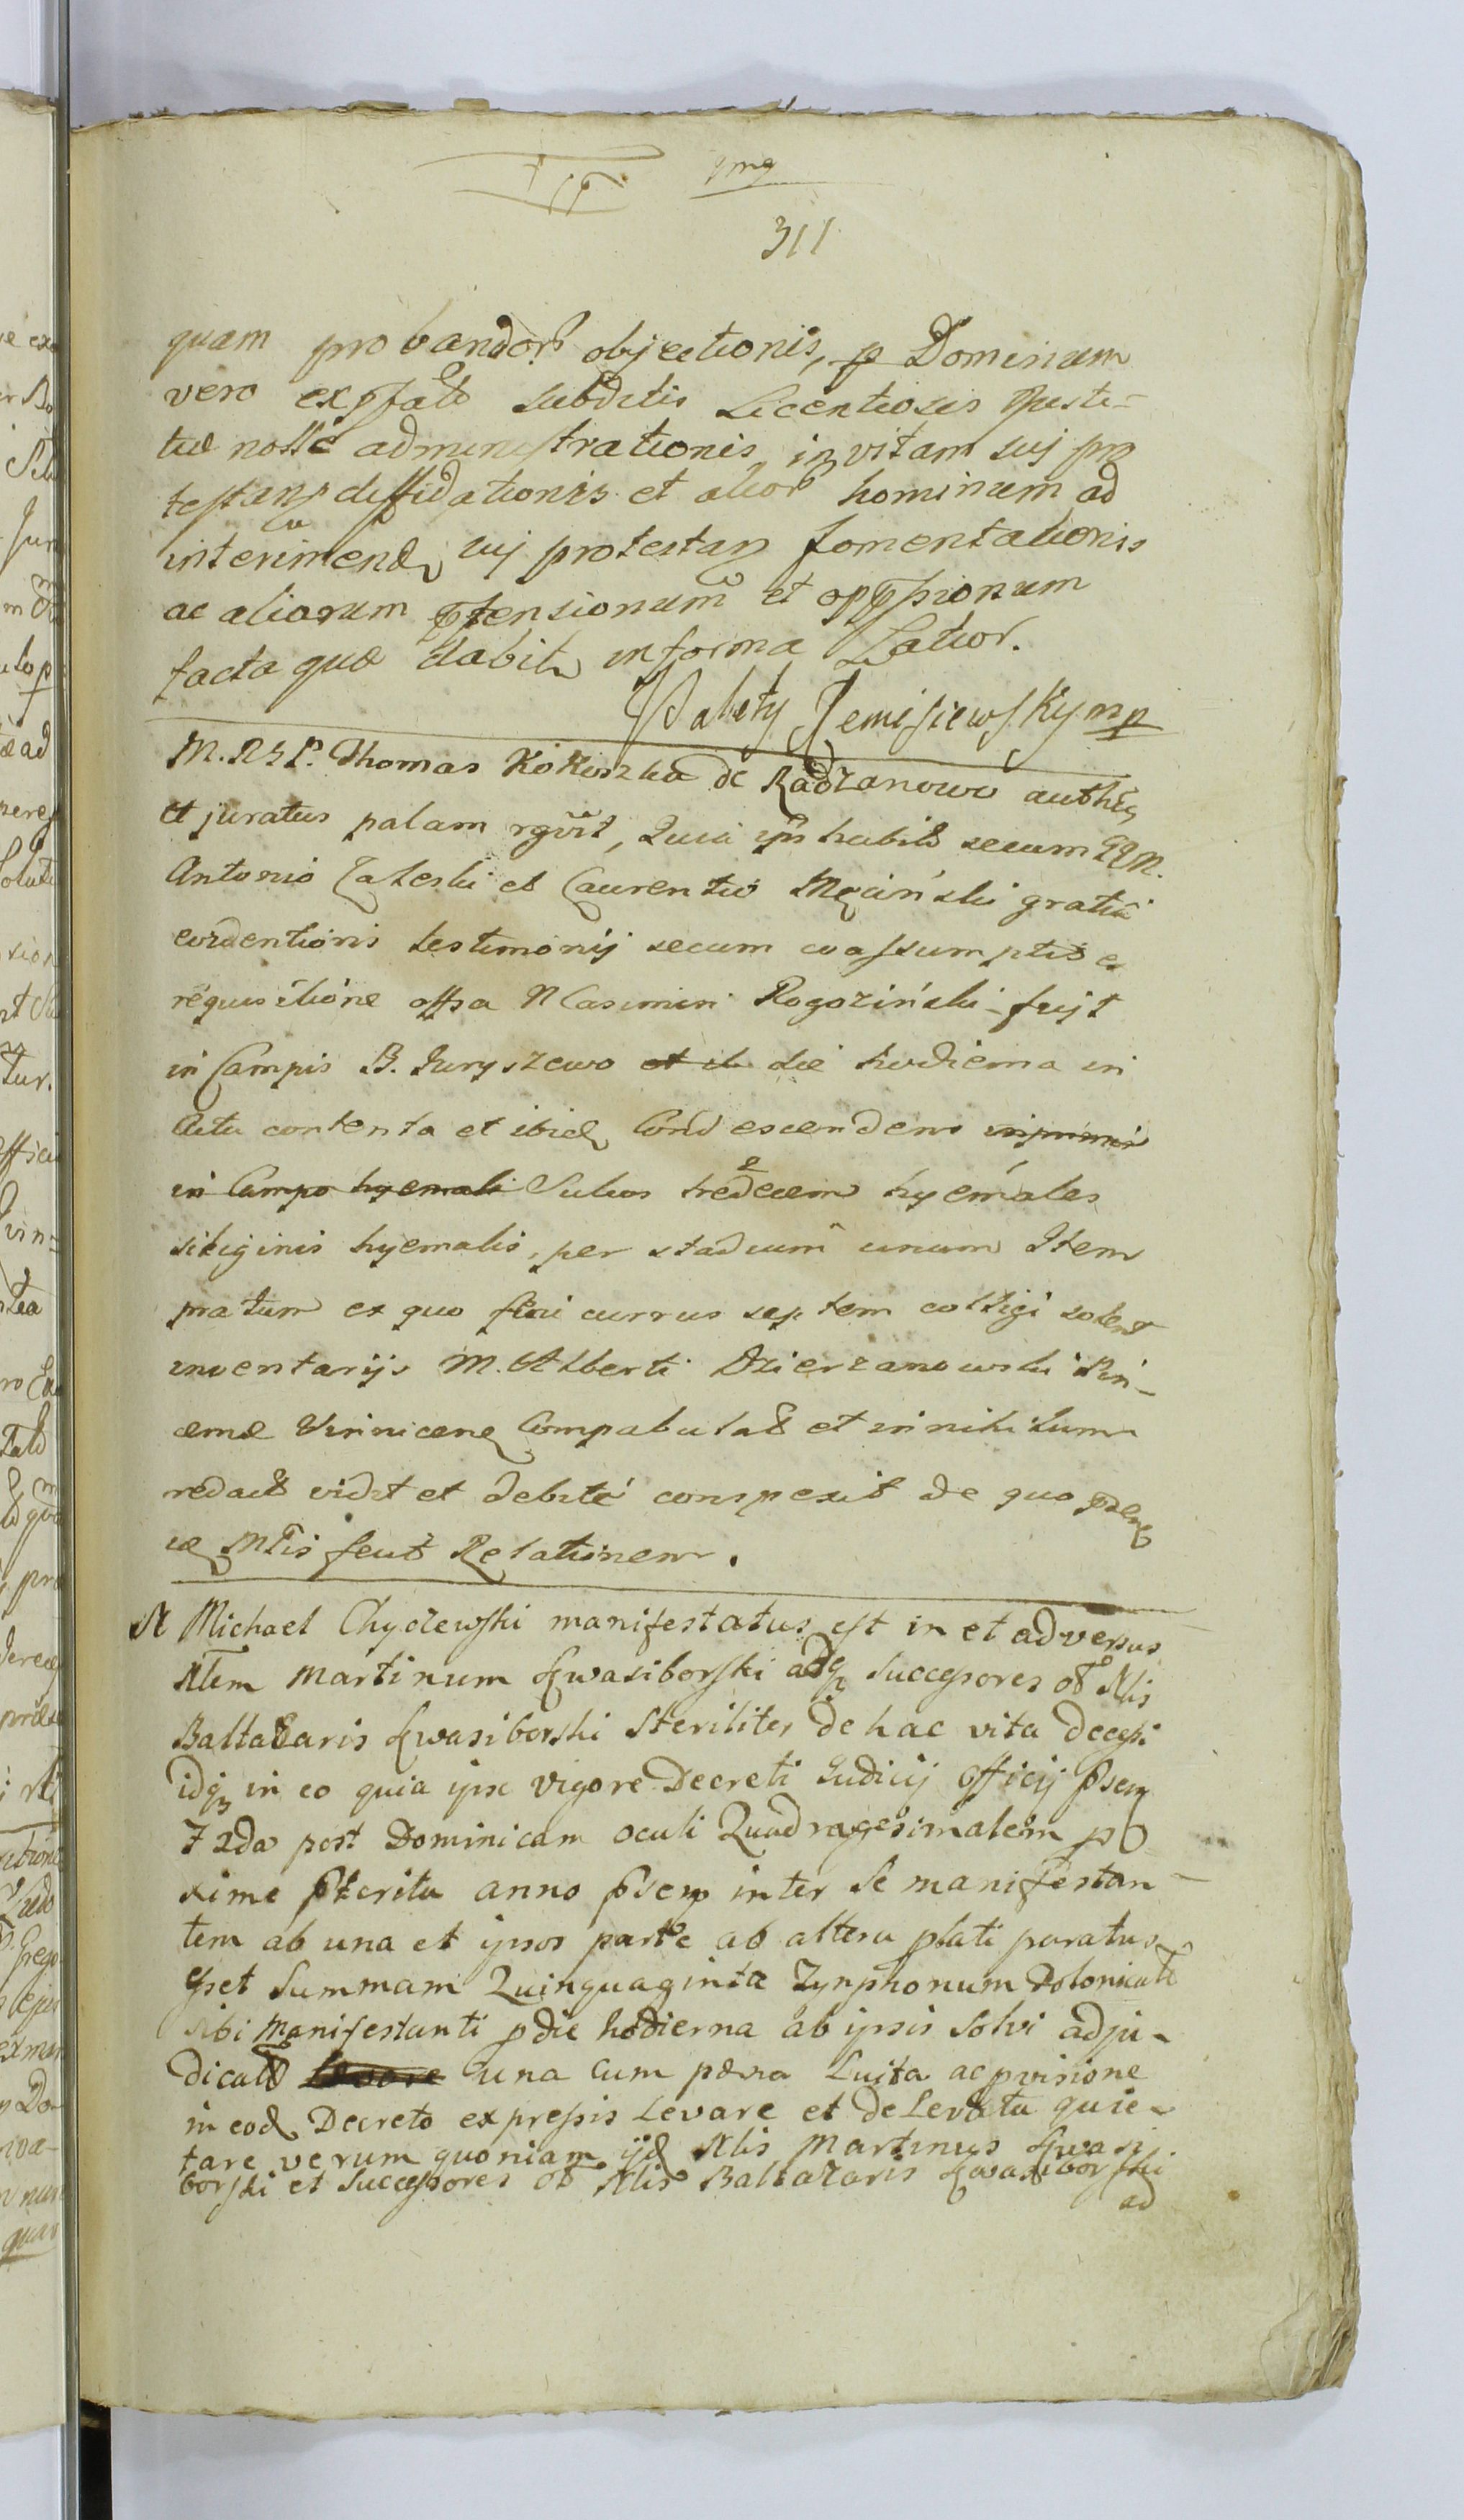 311
quam probandor objectionis, p Dominum
vero exptato subditis Licentiosis resti-
tuæ nosse administrationis, in vitam sui pro
testan diffidationis et alior hominum ad
interimend sui protestan fomentationis
ac aliorum offensionum et oppssionum
facta quæ dabit in forma Latior.
Walenty Jemisiewsky mp
M.RSP. Thomas Kokoszka de Radzanowo authen
et juratus palam rgvit, Quia ips habito secum GGN.
Antonio Zaleski et Laurentio Męciński gratia
evidentioris testimonij secum coassumptis e
requisitione offsa N Casimiri Rogoziński fuit
in Campis B. Juryszewo et in die hodierna in
Actu contenta et ibid Condescendens inprimis
in Campo hyemali Sulcos tredecem hyemales
siliginis hyemalis, per stadium unum Item
pratum ex quo fæni currus septem colligi solent
inventarijs M. Alberti Dzierzanowski Pin-
cernæ Vinnicen Compabulat et in nihilum
redact vidit et debité conspexit de quo præn
iæ Mtis fecit Relationem.
N Michael Chyczewski manifestatus est in et adversus
Nlem Martinum Kwasiborski adq Successores ol Nlis
Baltazaris Kwasiborski Steriliter de hac vita decessi
idq in eo quia ipse vigore Decreti Judicij Officij Psen
Fzda post Dominicam Oculi Quadragesimalem pro
xime Pterita anno Psen inter Se manifestan-
tem ab una et ipsos parte ab altera plati paratus
esset Summam Quinquaginta Zynphonum Polonicali
sibi Manifestanti p die hodierna ab ipsis Solvi adju-
dicato Levare una cum pæna Luita ac pvisione
in eod Decreto expressis Levare et de Levata quie-
tare verum quoniam ijd Nlis Martinus Kwasi-
borski et Successores ol Nlis Baltazaris Kwasiborski
ad